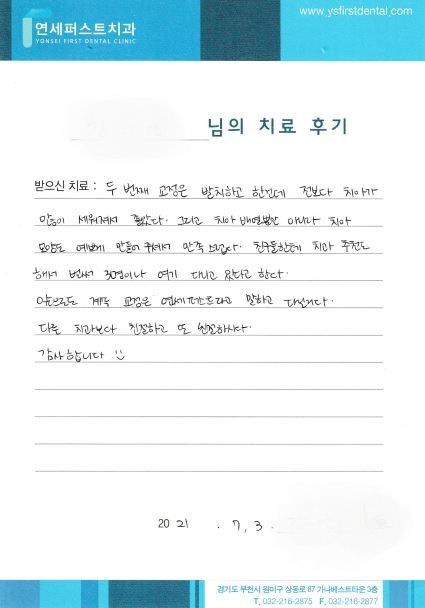 연세퍼스트치과
YONSEI FIRST DENTAL CLINIC
www.ysfirstdental.com
님의 치료 후기
받으신 치료 : 두 번째 교정은 발치하고 한건데 전보다 치아가
많이 세워져서 좋았다. 그리고 치아 배열뿐만 아니라 치아
모양도 예쁘게 만들어 주셔서 만족스럽다. 친구들한테 치과 추천도
해서 벌써 3명이나 여기 다니고 있다고 한다.
앞으로도 계속 교정은 연세퍼스트라고 말하고 다닐거다.
다른 치과보다 친절하고 또 하시다.
감사합니다 :)
2021 . 7, 3 .
경기도 부천시 원미구 상동로 87 가나베스트타운 3층
T. 032-216-2875 F. 032-216-2877